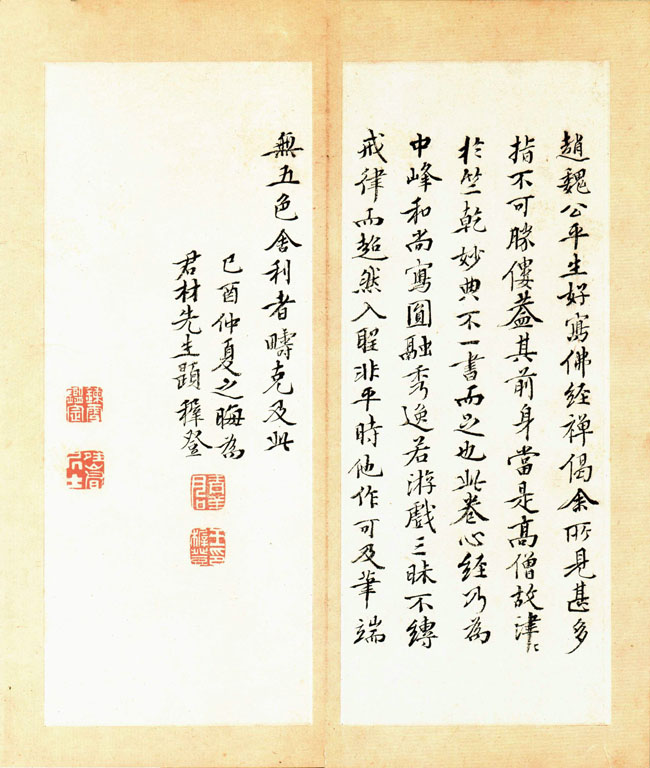 趙魏公平生好寫佛經禅偈余所見甚多
指不可勝僂蓋其前身當是髙僧故津〻
於竺乾妙典不一書而足也此卷心經乃為
中峰和尚寫圓融秀逸若游戲三昧不縛
戒律而超然入聖非平時他作可及筆端
無五色舍利者疇克及此
己酉仲夏之晦為
君材先生題穉登